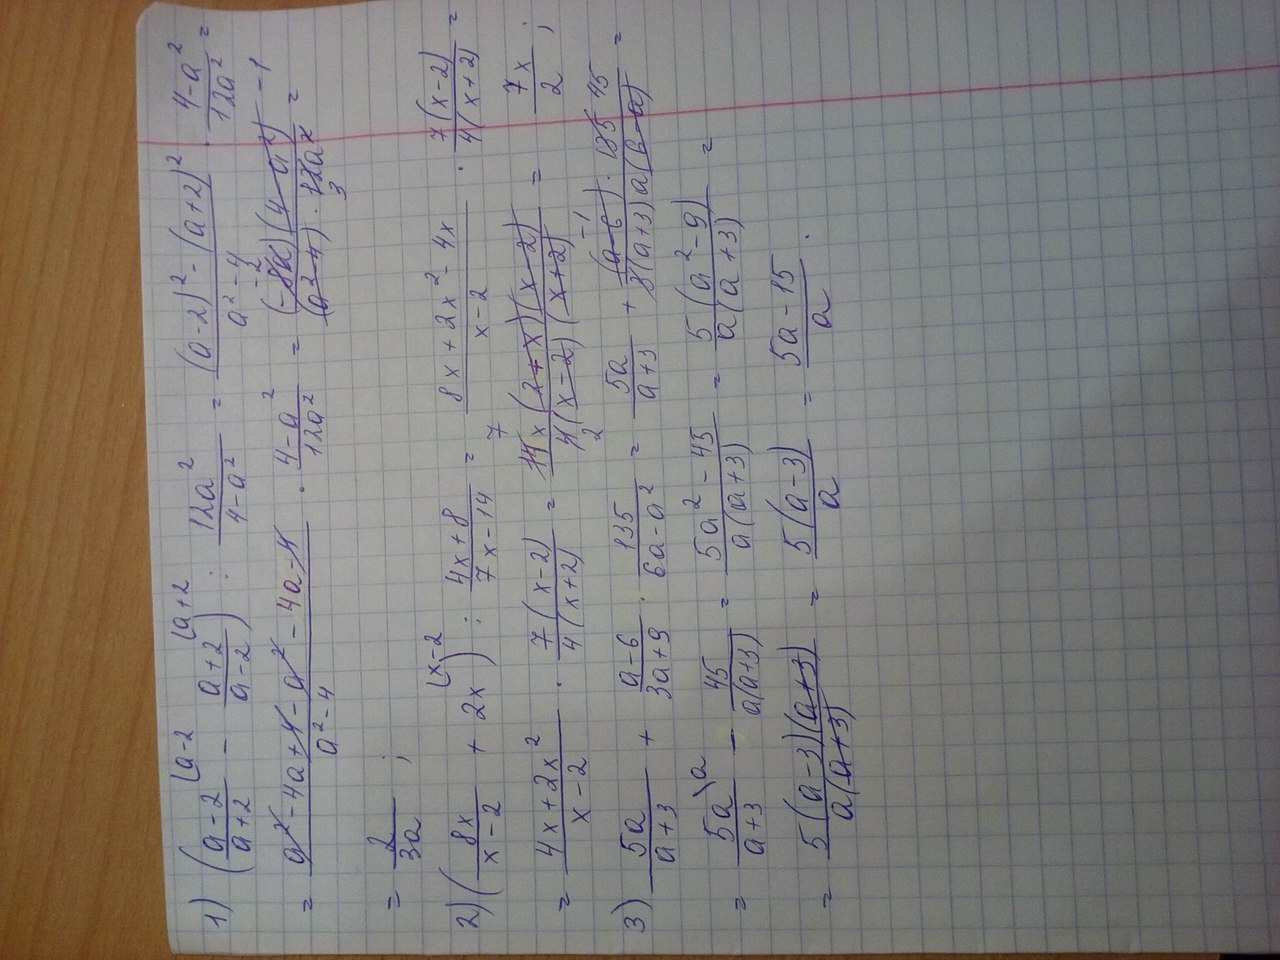 1) ((a-2)/(a+2) \(a-2 - (a+2)/(a-2) \(a+2) : 12a²/(4-a²) = ((a-2)² - (a+2)²)/(a²-4) · (4-a²)/(12a²) =
= (a²-4a+4-a²-4a-4)/(a²-4) · (4-a²)/(12a²) = (-8a) -2 (4-a²) -1/((a²-4) · 12a² 3) =
= 2/(3a) ;
2) (8x/(x-2) + 2x \(x-2) : (4x+8)/(7x-14) = (8x+2x²-4x)/(x-2) · 7(x-2)/(4(x+2)) =
= (4x+2x²)/(x-2) · 7(x-2)/(4(x+2)) = 7 14x(2+x)(x-2)/(2 4(x-2)(x+2)) = 7x/2 ;
3) 5a/(a+3) + (a-6)/(3a+9) · 135/(6a-a²) = 5a/(a+3) + (a-6) -1 · 135 45/(3(a+3)a(6-a)) =
= 5a \a/(a+3) - 45/(a(a+3)) = (5a²-45)/(a(a+3)) = 5(a²-9)/(a(a+3)) =
= 5(a-3)(a+3)/(a(a+3)) = 5(a-3)/a = (5a-15)/a .